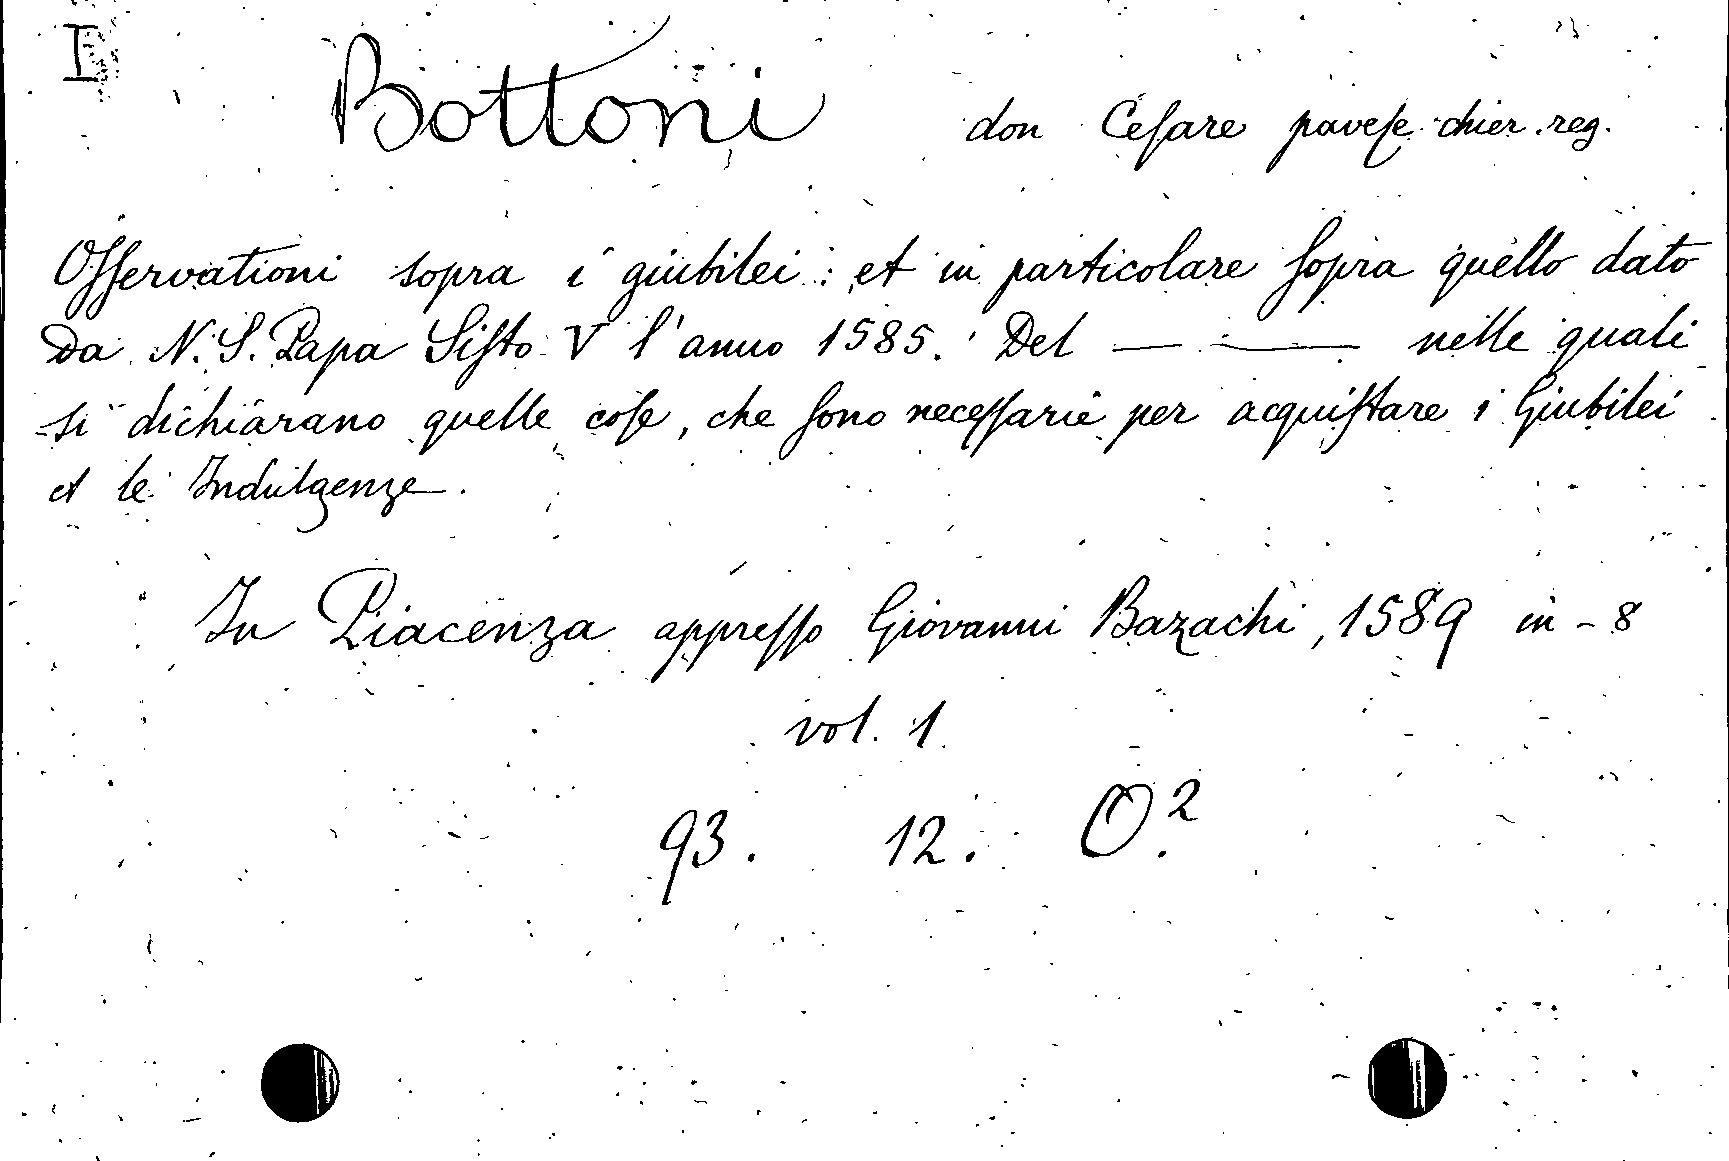 I
Bottoni don Ceſare paveſe chier. reg.
Oſſervationi sopra i giubilei: et in particolare ſopra quello dato
da N. S. Papa Siſto V l'anno 1585. Del — —— nelle quali
si dichiarano quelle coſe, che ſono neceſſarie per acquiſtare i Giubilei
et le Indulgenze.
In Piacenza appreſſo Giovanni Bazachi, 1589 in-8
vol. 1
93. 12. O.²